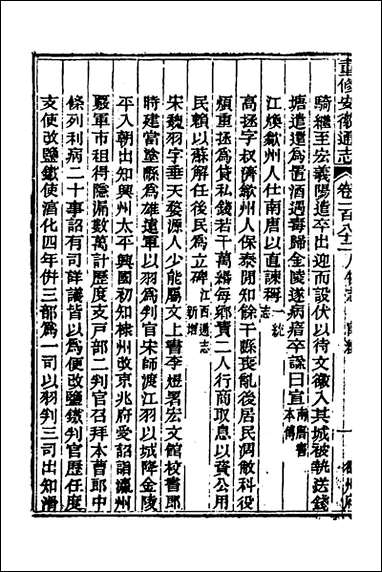 重修安徽通志 卷一百八十二 人物志 宦績 一 徽州府
騎繼至宏義陽遣卒出迎而設伏以待文徽入其城被執送錢
塘遣還爲置酒遇毒歸金陵遂病瘖卒諡曰宣 南唐書本傳
江煥歙州人仕南唐以直諫稱 一統志
高拯字叔濟歙州人保泰閒知餘干縣喪亂後居民凋敝科役
煩重拯爲貸私錢若干萬緡每鄉賣二人行商取息以資公用
民賴以蘇解任後民爲立碑 江西通志 新增
宋魏羽字垂天婺源人少能屬文上書李煜署宏文館校書郎
時建當塗縣爲雄遠軍以羽爲判官宋師渡江羽以城降金陵
平入朝出知興州太平興國初知棣州改京兆府受詔詣瀛州
覈軍市租得隱漏數萬計歷度支戸部二判官召拜本曹郎中
條列利病二十事詔有司詳議皆以爲便改鹽鐵判官歷任度
支使改鹽鐵使淯化四年併三部爲一司以羽判三司出知滑